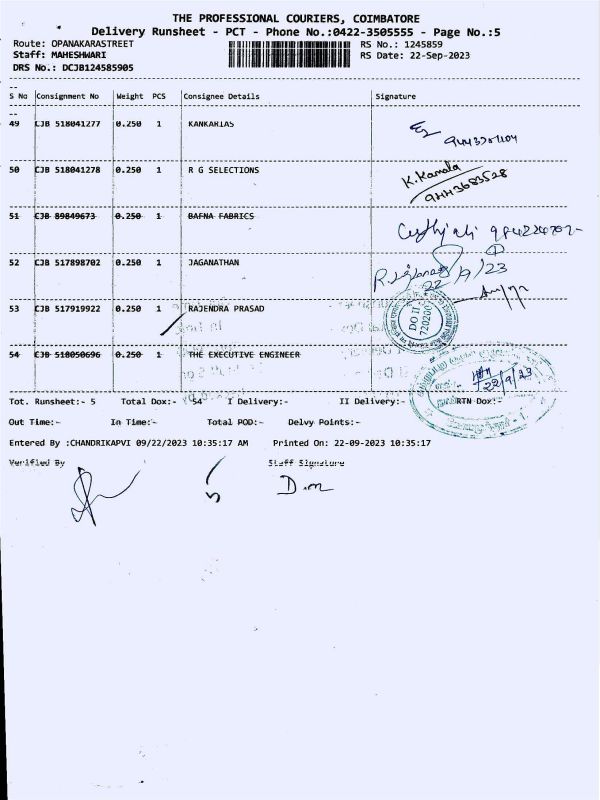 THE PROFESSIONAL COURIERS, COIMBATORE
Delivery Runsheet - PCT - Phone No.:0422-3505555 - Page No.:5
Route: OPANAKARASTREET RS No.: 1245859
Staff: MAHESHWARI RS Date: 22-Sep-2023
DRS No.: DCJB124585905
S No Consignment No Weight PCS Consignee Details Signature
49 CJB 518041277 0.250 1 KANKARIAS
50 CJB 518041278 0.250 1 R G SELECTIONS K.Kamala
9443683528
51 CJB 89849673 0.250 1 BAFNA FABRICS
52 CJB 517898702 0.250 1 JAGANATHAN
22/9/23
53 CJB 517919922 0.250 1 RAJENDRA PRASAD
54 CJB 518050696 0.250 1 THE EXECUTIVE ENGINEER
22/9/23
Tot. Runsheet:- 5 Total Dox:- 54 I Delivery:- II Delivery:- RTN Dox:-
Out Time:- In Time:- Total POD:- Delvy Points:-
Entered By :CHANDRIKAPVI 09/22/2023 10:35:17 AM Printed On: 22-09-2023 10:35:17
Verified By Staff Signature